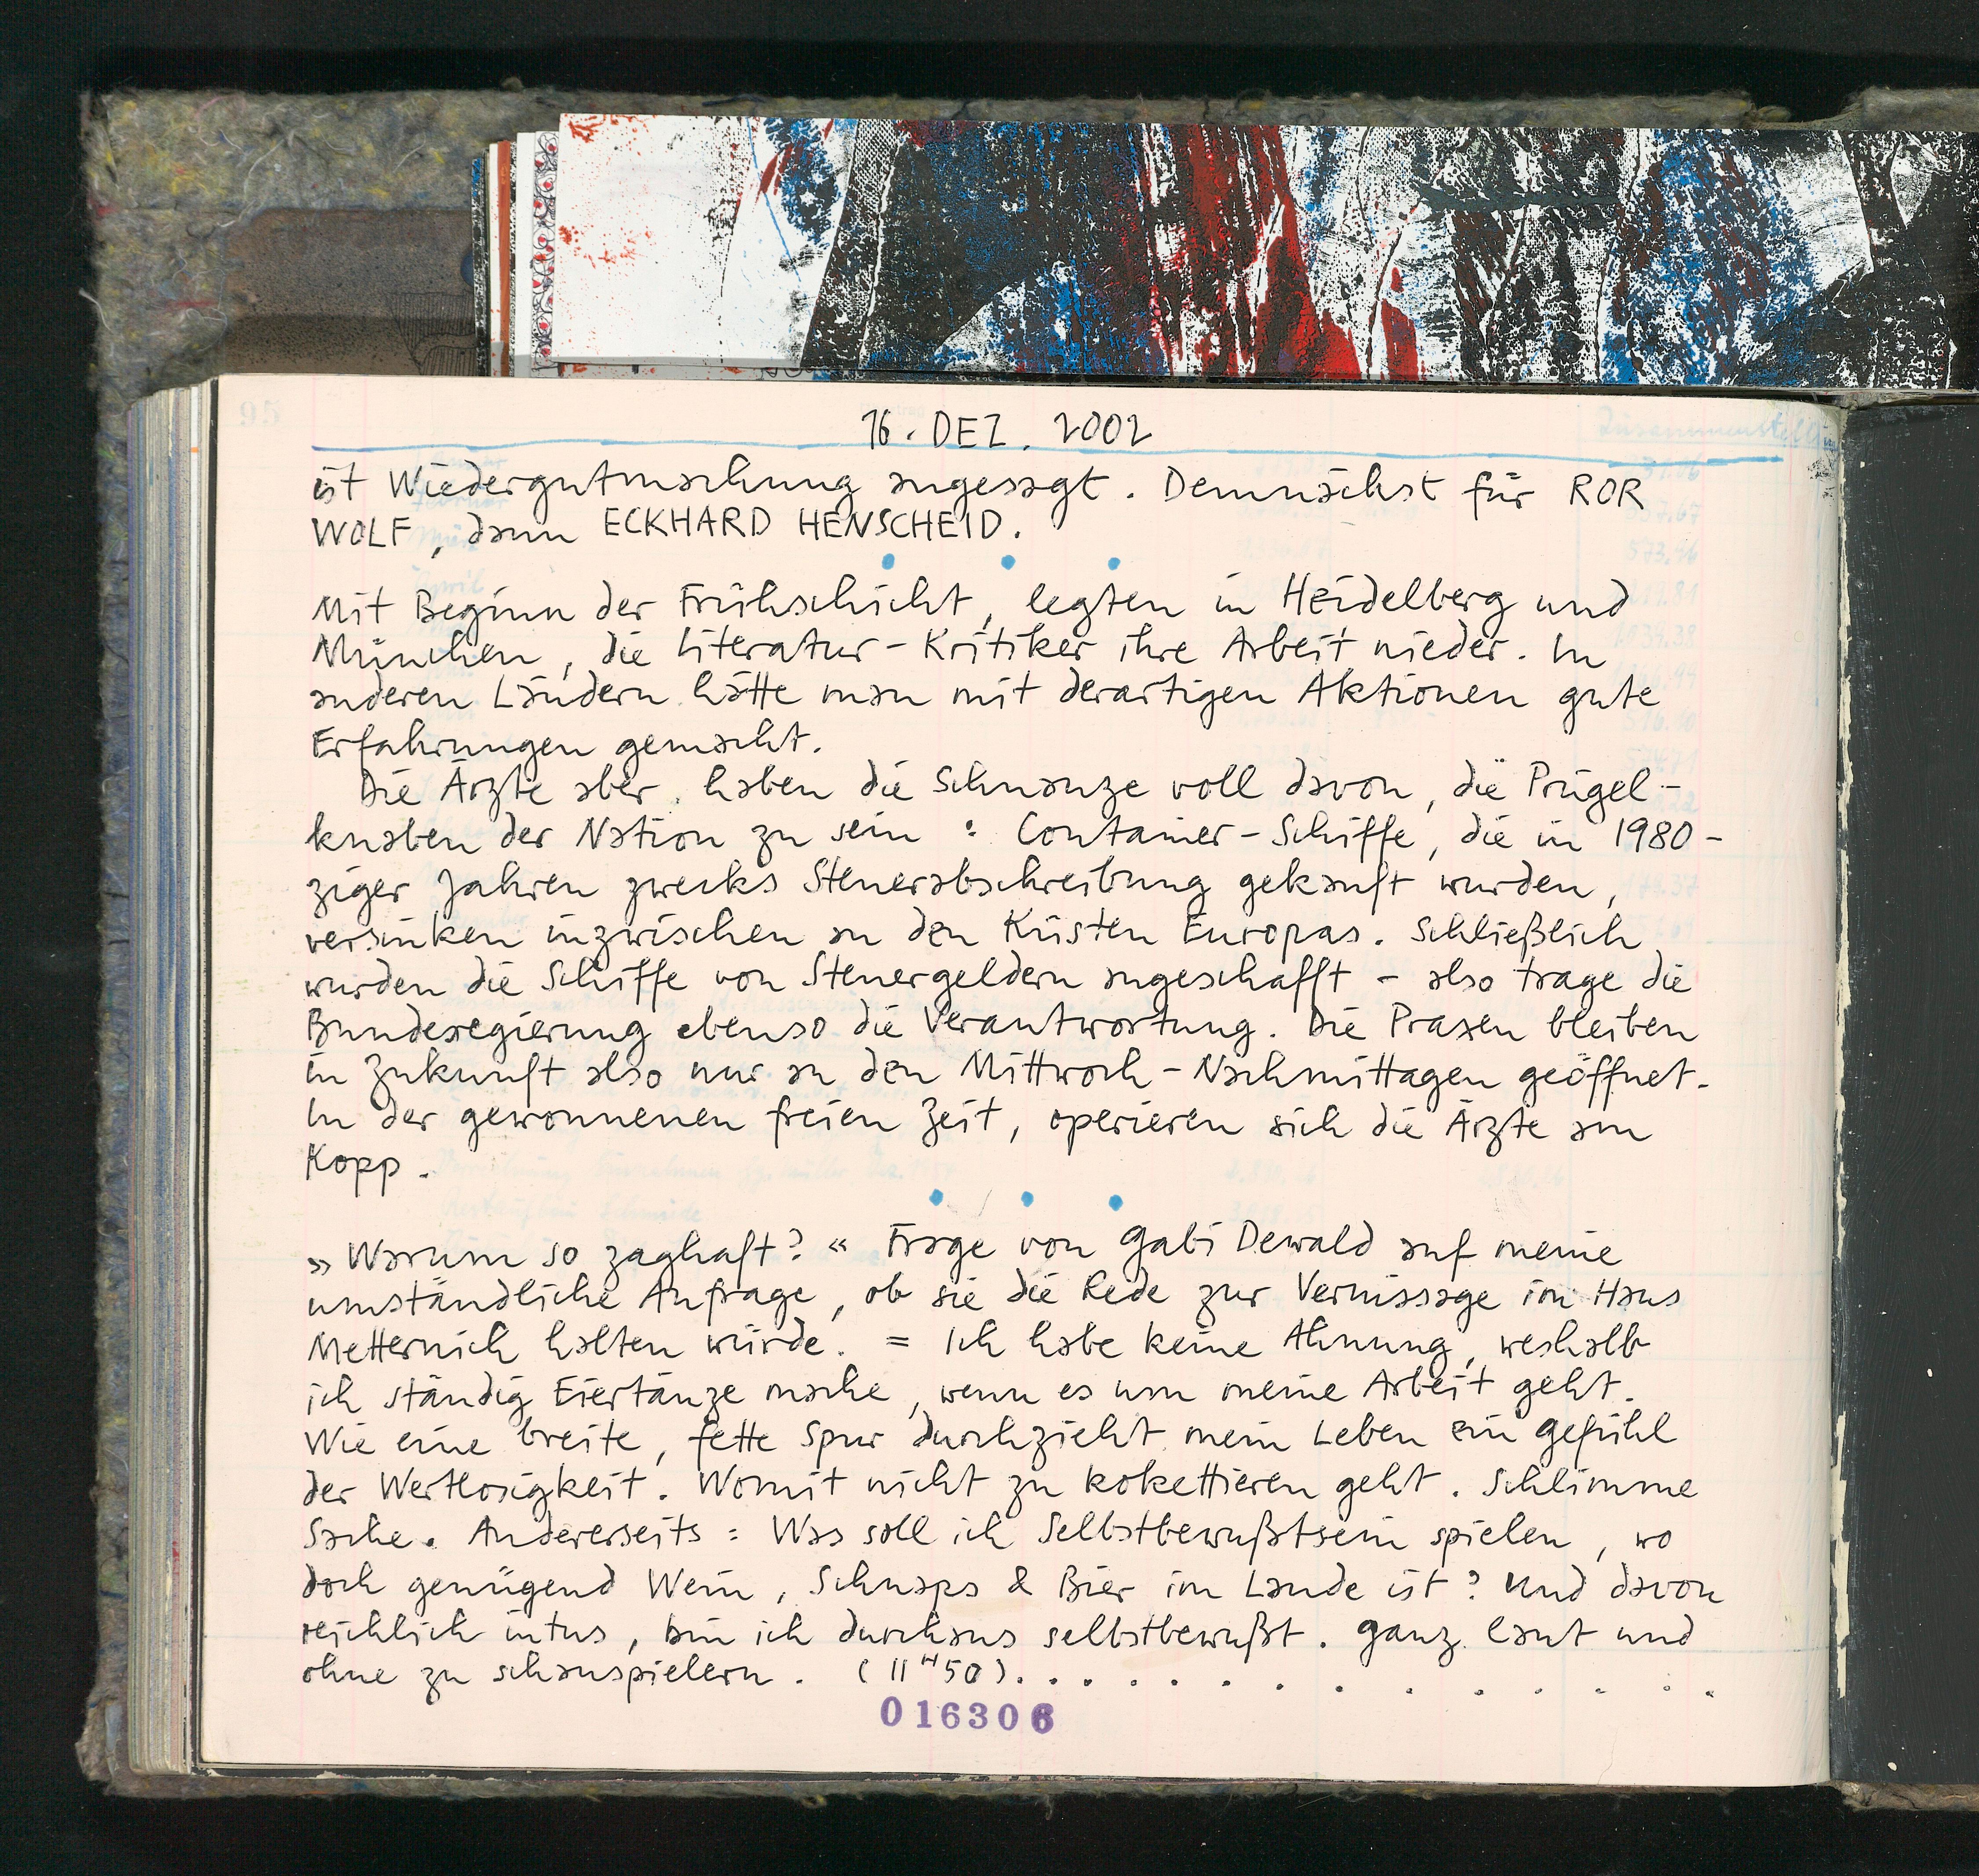 16. DEZ. 2002
ist Wiedergutmachung angesagt. Demnächst für ROR
WOLF, dann ECKHARD HENSCHEID.
Mit Beginn der Frühschicht, legten in Heidelberg und
München, die Literatur-Kritiker ihre Arbeit nieder. In
anderen Ländern hätte man mit derartigen Aktionen gute
Erfahrungen gemacht.
Die Ärzte aber, haben die Schnauze voll davon, die Prügel-
knaben der Nation zu sein: Container-Schiffe, die in 1980-
ziger Jahren zwecks Steuerabschreibung gekauft wurden,
versinken inzwischen an den Küsten Europas. Schließlich
wurden die Schiffe von Steuergeldern angeschafft – also trage die
Bundesregierung ebenso die Verantwortung. Die Praxen bleiben
in Zukunft also nur an den Mittwoch-Nachmittagen geöffnet.
In der gewonnenen freien Zeit, operieren sich die Ärzte am
Kopp.
»Warum so zaghaft?« Frage von Gabi Dewald auf meine
umständliche Anfrage, ob sie die Rede zur Vernissage im Haus
Metternich halten würde. = Ich habe keine Ahnung, weshalb
ich ständig Eiertänze mache, wenn es um meine Arbeit geht.
Wie eine breite, fette Spur durchzieht mein Leben ein Gefühl
der Wertlosigkeit. Womit nicht zu kokettieren geht. Schlimme
Sache. Andererseits: Was soll ich Selbstbewußtsein spielen, wo
doch genügend Wein, Schnaps & Bier im Lande ist? Und davon
reichlich intus, bin ich durchaus selbstbewußt. Ganz laut und
ohne zu schauspielern. (11ᴴ50). . . . . . . . . . . . . . .
016306